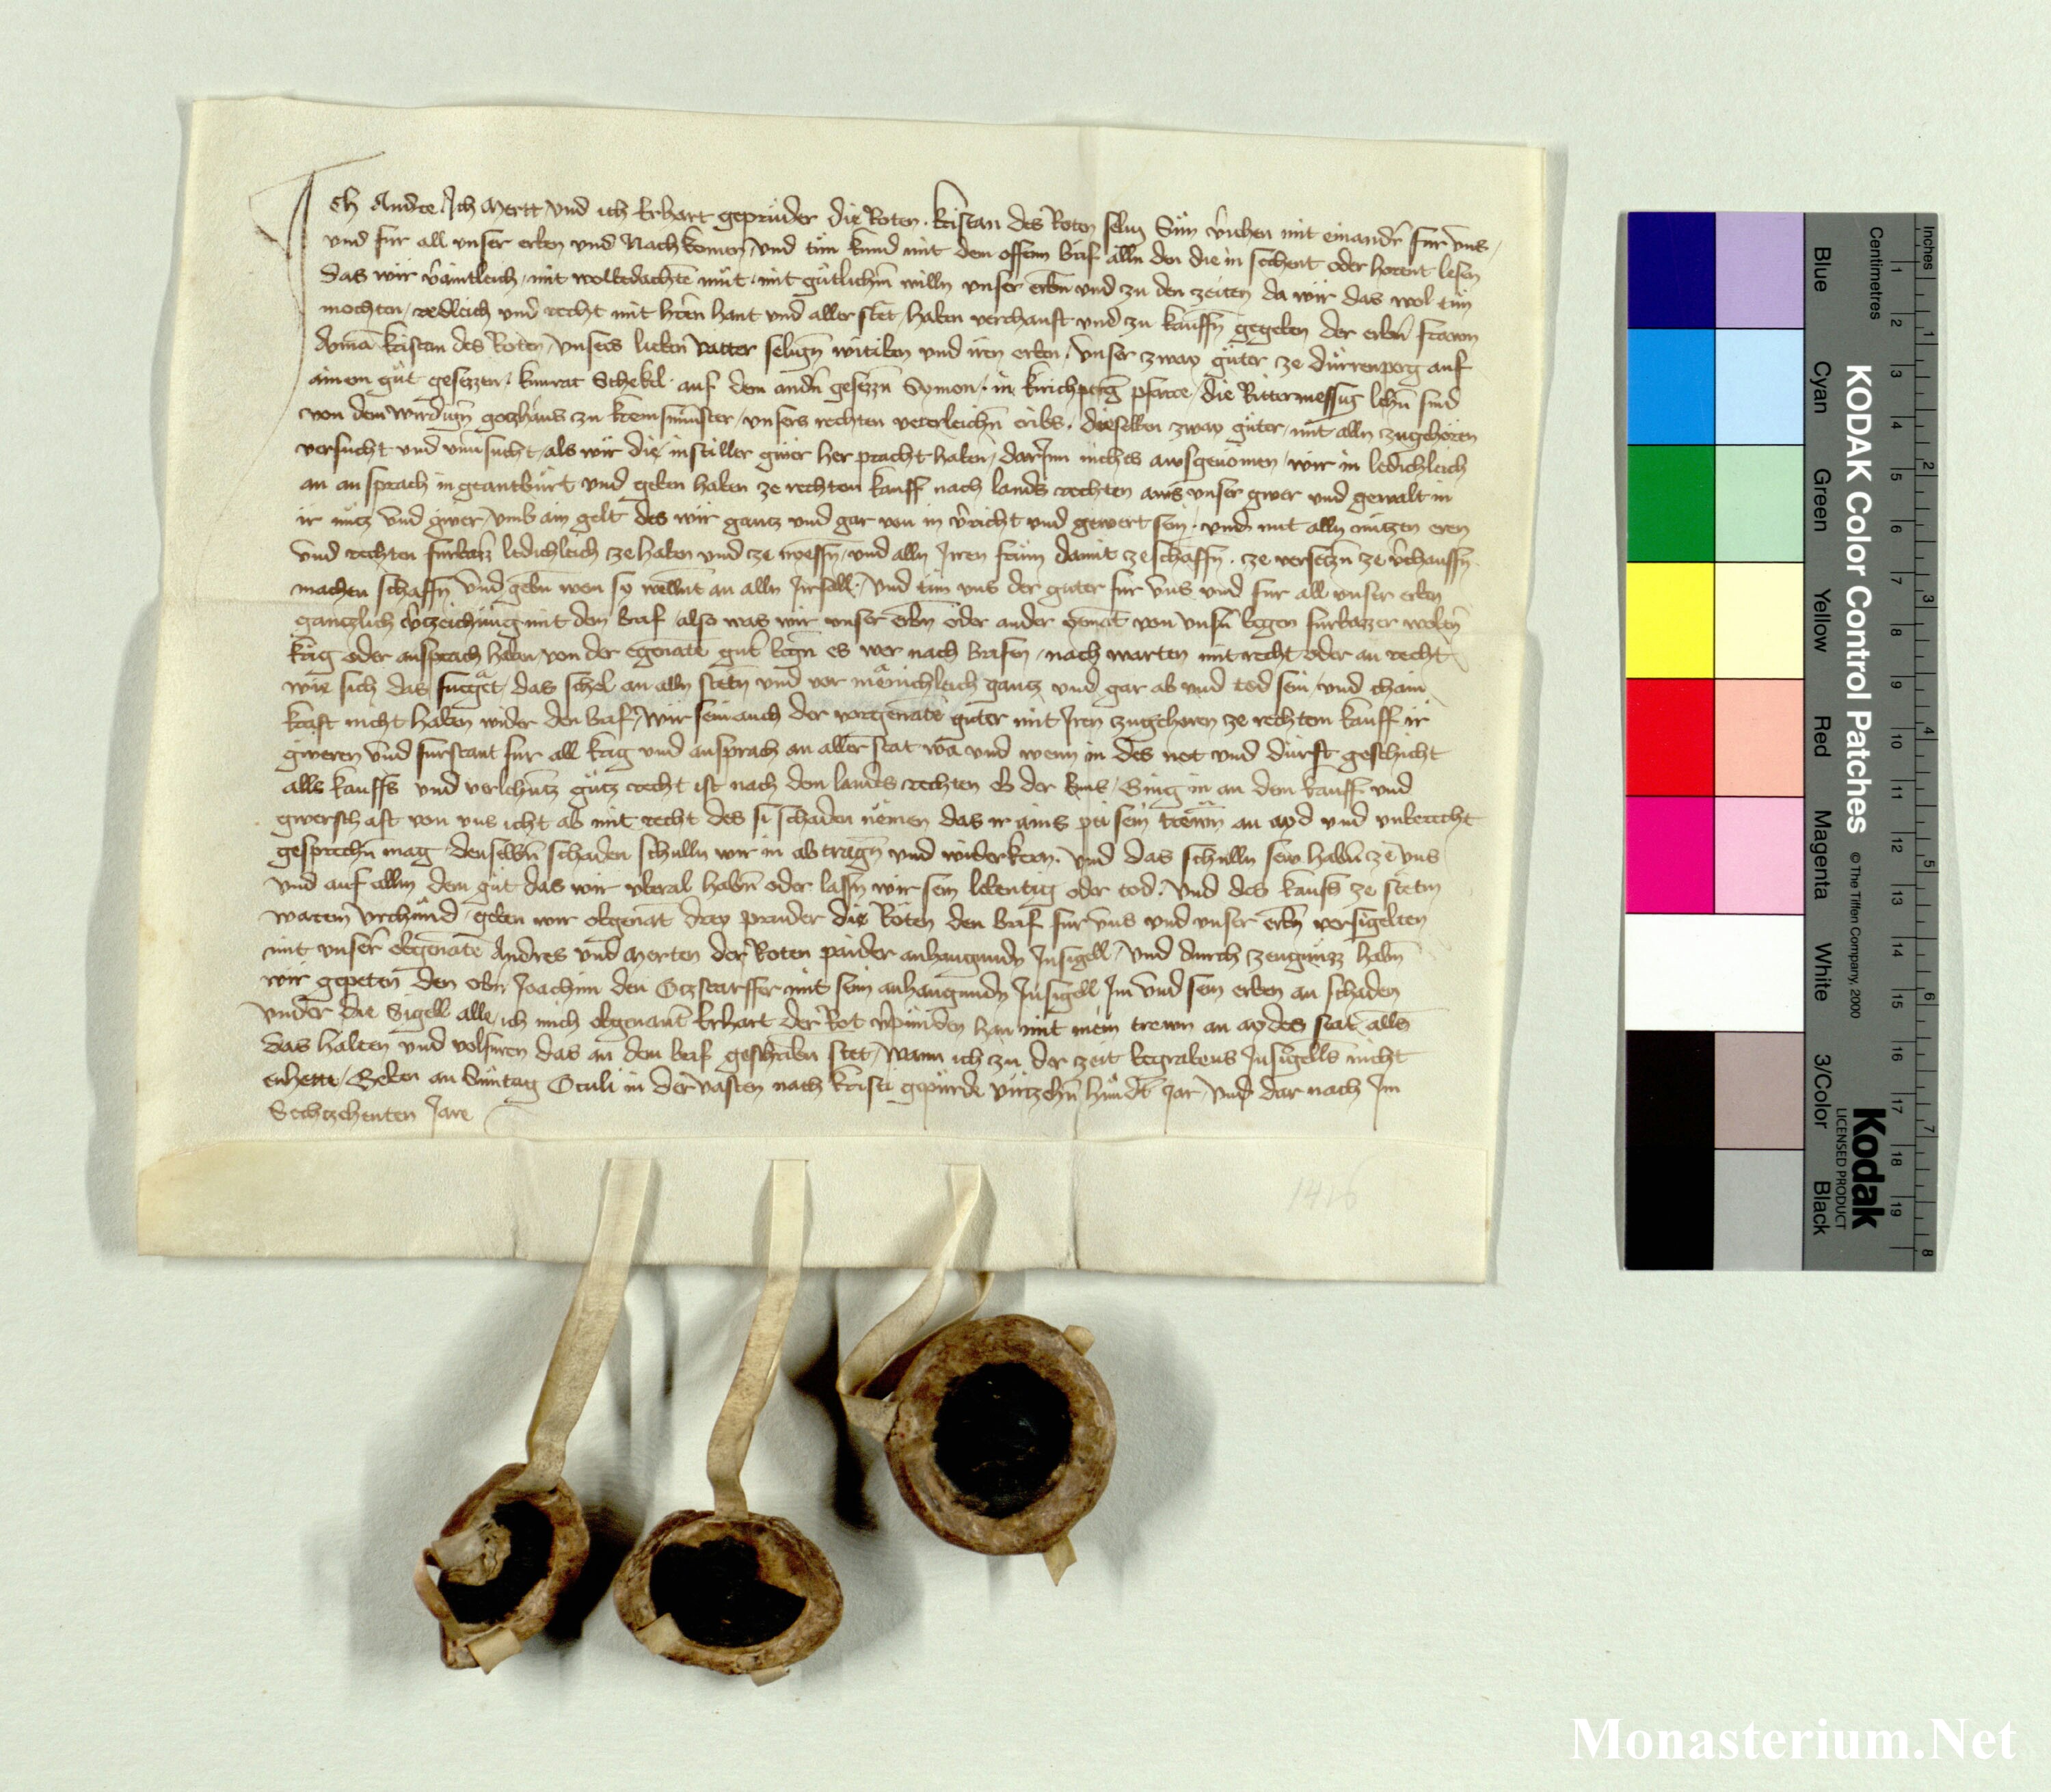 Ich Andre Ich Mertt und ich Erhart geprüder die Roten Kristan des Roten selig Sün v̄iehen mit einandr̄ fur vns
und fur all unser erben und Nachkomen und tün kund mit dem offenn brif alln den die in sechent oder horent lesen
das wir mit wolbedachtē müt mit gütlichm̄ willn unser erbn̄ und zu den zeiten da wir das wol tün
mochten redleich und recht mit hant und aller stet haben verchauft und zu kauffn̄ gegeben der erbn̄ frawn
kristan des Roten unsers lieben vatter selign̄ witiben und iren erben unser zway güter ze dürrenperg auf
ainem güt gesezzen kunrat Schekel auf dem andn̄ gesezzn̄ Symon in kirichperg pfarre die Rittermessig lehn̄ sind
von dem wirdign̄ gotzhaus zu kremsmünster unsers rechten veterleichn̄ eribs dieselben zway güter mit alln zugehoren
versucht und als wir die in stiller gwer her pracht haben darinn nichtes ausgenomen wir in ledichleich
an ansprach in geantbürt und geben haben ze rechten kauff nach lands rechten aws unser gwer und gewalt in
ir nütz und gwer umb ain gelt des wir gantz und gar von in v̄richt und gewert sein und mit alln nützen eren
und rechten furbaz ledichleich ze haben und ze niessn̄ und alln Iren frūm damit ze schaffn̄ ze versetzn̄ ze v̄chauffn̄
machen schaffn̄ und gebn̄ wen so wellnt an alln Irsall und tün uns der güter fur uns und fur all unser erben
gantzlich mit dem brif also was wir unser erbn̄ oder ander von unsn̄ wegen furbazzer
krig oder ansprach hebn̄ von der egenātē güt wegn̄ es wer nach brifen nach warten mit recht oder an recht
wie sich das füeget das schol an alln stetn̄ und vor mēnichleich gantz und gar ab und tod sein und chain
kraft nicht haben wider den brif Wir sein auch der vorgenātē güter mit Iren zugehoren ze rechtem kauff ir
gweren und furstant fur all krig und ansprach an aller stat wa und wenn in des not und dürft geschicht
alls kauffs und verlehntz gütz recht ist nach dem lands rechten ob der Ens Ging in an dem kauff und
gwerschaft von uns icht ab mit recht des si schaden nēmen das ir ains pei sein trewn an ayd und unberecht
gesprechn̄ mag denselbn̄ schaden schulln wir in abtragn̄ und widerkern Und das schulln sew habn̄ ze uns
und auf allm dem güt das wir uberal habn̄ oder lassn̄ wir sein lebentig oder tod Und des kaufs ze stetm
warem vrchünd geben wir obgenāt drey prüder die Roten den brif fur uns und unser erbn̄ versigelten
mit unser obgenātē Andres und Merten der Roten paider anhangundn Insigell Und durch zeugnüzz habn̄
wir gepeten den erbn̄ Joachim den mit seim anhangundn Insigell Im und sein erben an schaden
under die Sigell alle ich mich obgenant Erhart der Rot v̄pünden han mit mein trewn an aydes stat alls
das halten und volfuren das an dem brif geschribn̄ stet Wann ich zu der zeit begrabens Insigells nicht
enhett Geben an Süntag Oculi in der vasten nach kristi gepürde virtzehn̄ hündt Jar Und dar nach Im
Sechtzehenten Jare
1416
KODAK Color Control Patches
© The Tiffen Company, 2000
Kodak
LICENSED PRODUCT
Blue
Cyan
Green
Yellow
Red
Magenta
White
3/Color
Black
Inches
1 2 3 4 5 6 7 8
Centimetres
1 2 3 4 5 6 7 8 9 10 11 12 13 14 15 16 17 18 19
Monasterium.Net